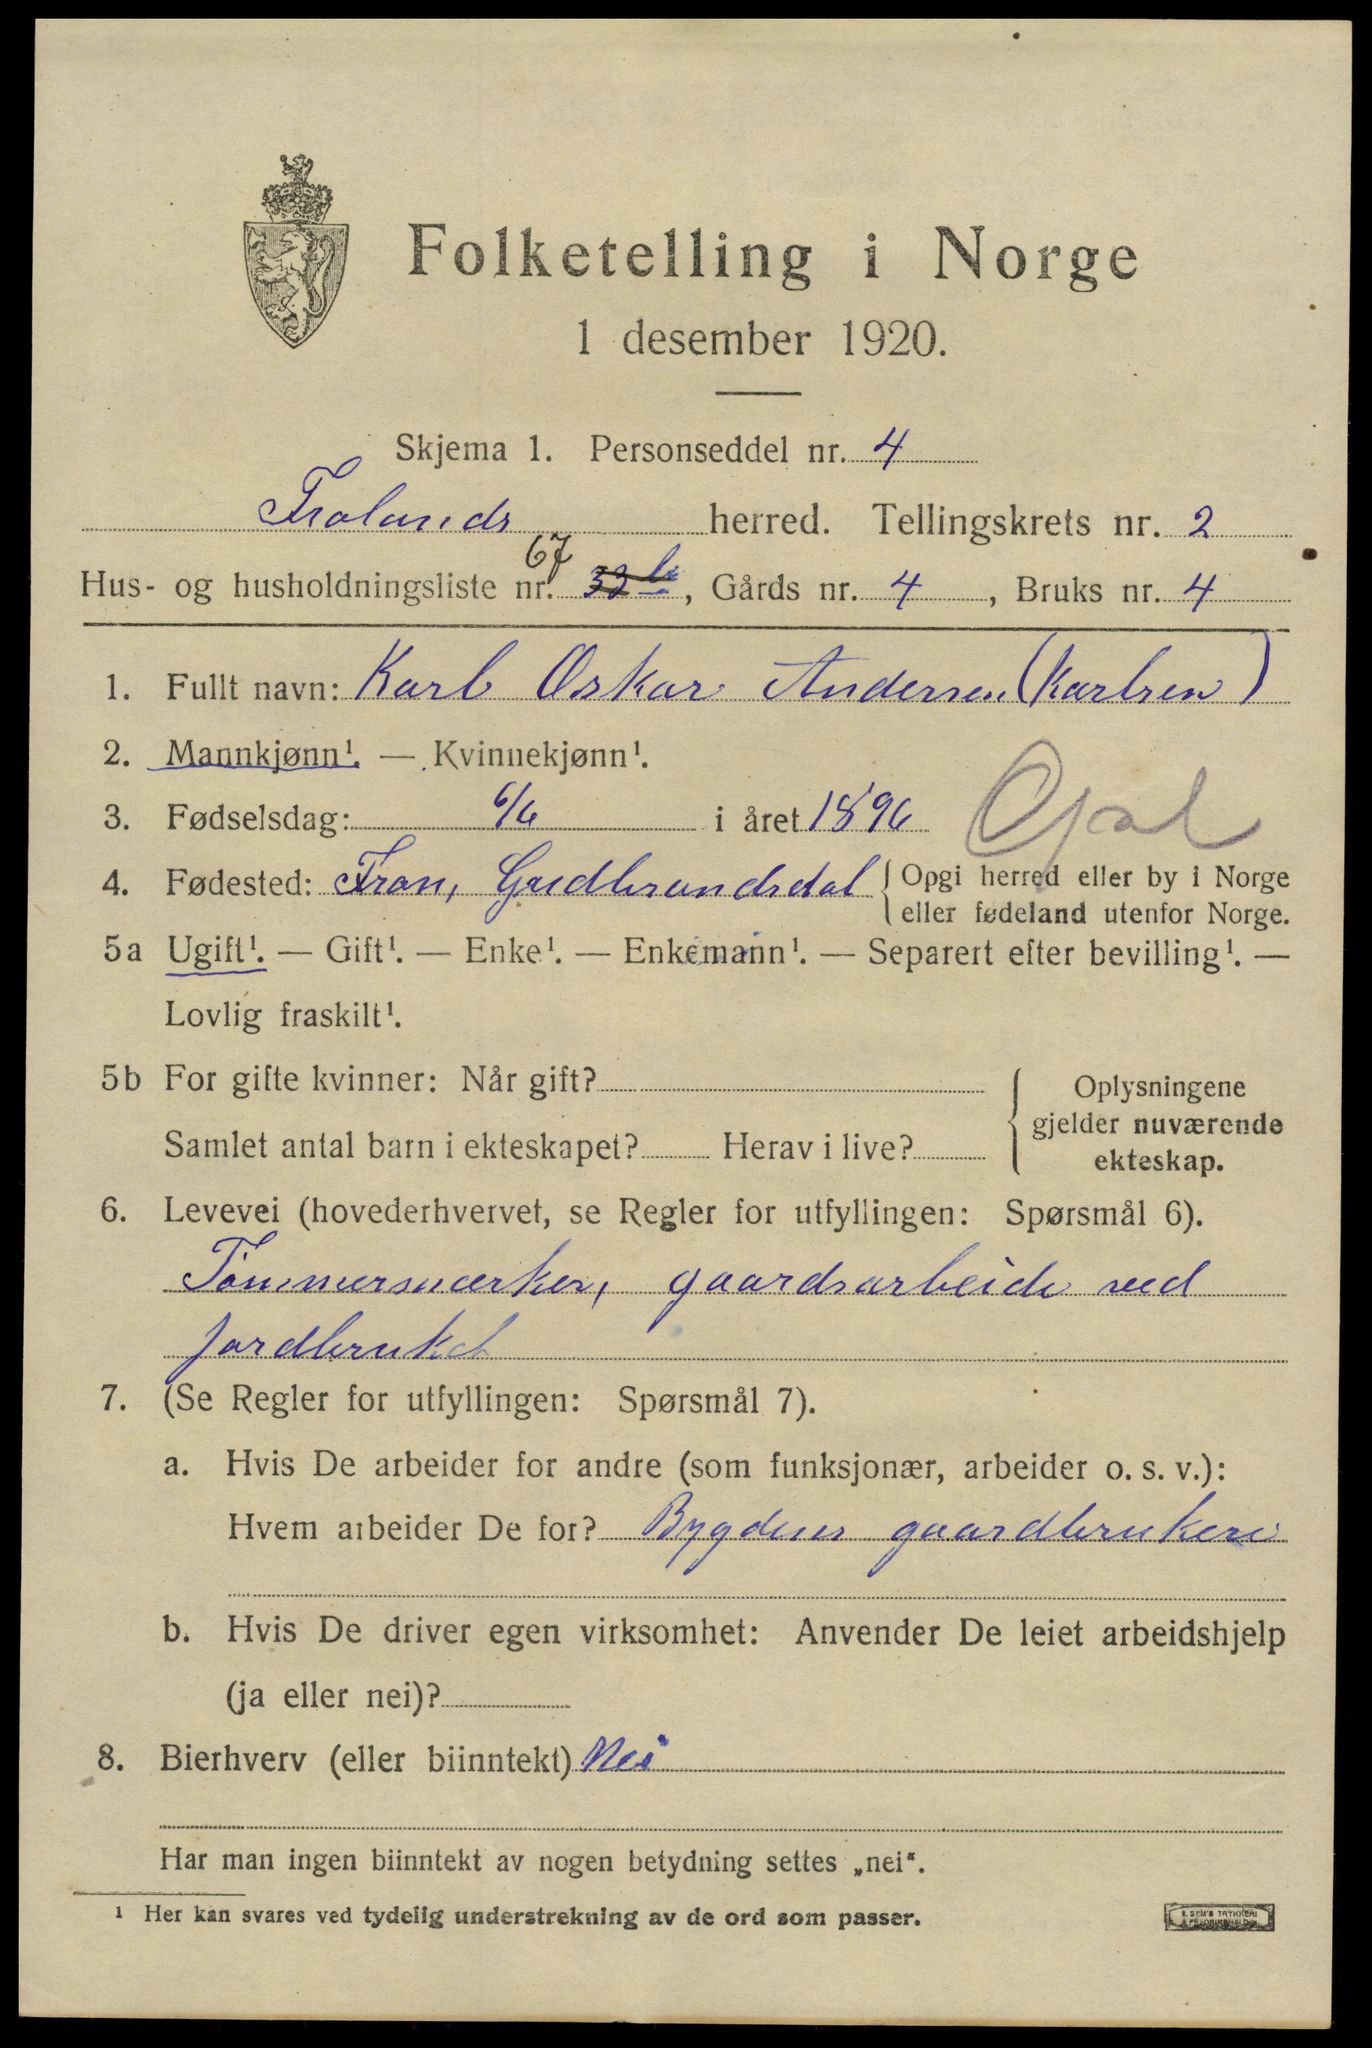 Folketelling i Norge
1 desember 1920.
Skjema 1. Personseddel nr. 4
Frolands herred. Tellingskrets nr. 2
67
Hus- og husholdningsliste nr. 32b, Gårds nr. 4, Bruks nr. 4
1. Fullt navn: Karl Oskar Andersen (Karlsen)
2. Mannkjønn¹. — Kvinnekjønn¹.
3. Fødselsdag: 6/6 i året 1896
4. Fødested: Fron, Gudbrandsdal { Opgi herred eller by i Norge
eller fødeland utenfor Norge.
5a Ugift¹. — Gift¹. — Enke¹. — Enkemann¹. — Separert efter bevilling¹. —
Lovlig fraskilt¹.
5b For gifte kvinner: Når gift?
Samlet antal barn i ekteskapet? Herav i live?
{ Oplysningene
gjelder nuværende
ekteskap.
6. Levevei (hovederhvervet, se Regler for utfyllingen: Spørsmål 6).
Tømmermerker, gaardsarbeide ved
jordbruket
7. (Se Regler for utfyllingen: Spørsmål 7).
a. Hvis De arbeider for andre (som funksjonær, arbeider o. s. v.):
Hvem arbeider De for? Bygdens gaardbrukere
b. Hvis De driver egen virksomhet: Anvender De leiet arbeidshjelp
(ja eller nei)?
8. Bierhverv (eller biinntekt) Nei
Har man ingen biinntekt av nogen betydning settes „nei“.
¹ Her kan svares ved tydelig understrekning av de ord som passer.
E. SEM'S TRYKKERI
FREDRIKSHALD